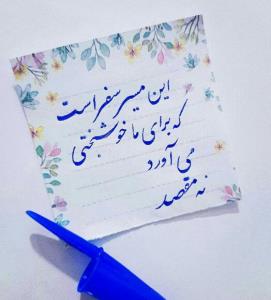 این مسیر سفر است
که برای ما خوشبختی
می آورد
نه مقصد